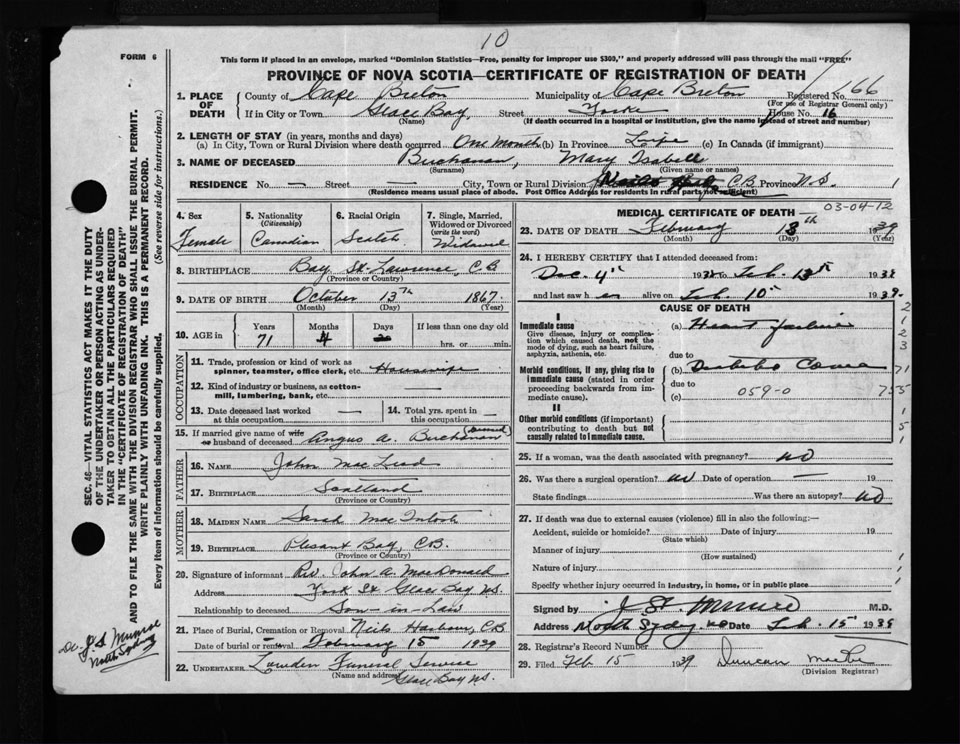 10
FORM 6
This form if placed in an envelope, marked "Dominion Statistics—Free, penalty for improper use $300," and properly addressed will pass through the mail "FREE"
PROVINCE OF NOVA SCOTIA—CERTIFICATE OF REGISTRATION OF DEATH
1. PLACE OF DEATH County of Cape Breton Municipality of Cape Breton Registered No. 166
(For use of Registrar General only)
If in City or Town Glace Bay, Street Yorke House No. 16
(Name) (If death occurred in a hospital or institution, give the name instead of street and number)
2. LENGTH OF STAY (in years, months and days)
(a) In City, Town or Rural Division where death occurred One Month (b) In Province Life (c) In Canada (if immigrant)
3. NAME OF DECEASED Buchanan, Mary Isabell
(Surname) (Given name or names)
RESIDENCE No. — Street — City, Town or Rural Division C.B. Province N.S. 1
(Residence means usual place of abode. Post Office Address for residents in rural parts not sufficient)
4. Sex Female
5. Nationality (Citizenship) Canadian
6. Racial Origin Scotch
7. Single, Married, Widowed or Divorced (write the word) Widowed
8. BIRTHPLACE Bay St. Lawrence, C.B
(Province or Country)
9. DATE OF BIRTH October 13th 1867
(Month) (Day) (Year)
10. AGE in Years 71 Months 4 Days — If less than one day old hrs. or min.
OCCUPATION
11. Trade, profession or kind of work as spinner, teamster, office clerk, etc. Housewife
12. Kind of industry or business, as cotton-mill, lumbering, bank, etc.
13. Date deceased last worked at this occupation —
14. Total yrs. spent in this occupation —
15. If married give name of wife or husband of deceased Angus A. Buchanan
FATHER
16. NAME John MacLeod
17. BIRTHPLACE Scotland
(Province or Country)
MOTHER
18. MAIDEN NAME Sarah MacIntosh
19. BIRTHPLACE Plesant Bay, C.B.
(Province or Country)
20. Signature of informant Rev. John A. MacDonald
Address York St Glace Bay N.S.
Relationship to deceased Son-in-Law
21. Place of Burial, Cremation or Removal Neils Harbour, C.B
Date of burial or removal February 15 1939
22. UNDERTAKER Lowden Funeral Service
(Name and address) Glace Bay N.S.
MEDICAL CERTIFICATE OF DEATH 03-04-12
23. DATE OF DEATH February 13th 1939
(Month) (Day) (Year)
24. I HEREBY CERTIFY that I attended deceased from:
Dec. 4th 1938 to Feb. 13th 1938
and last saw her alive on Feb. 10th 1939.
CAUSE OF DEATH
I
Immediate cause (a) Heart failure
Give disease, injury or complication which caused death, not the mode of dying, such as heart failure, asphyxia, asthenia, etc.
due to
Morbid conditions, if any, giving rise to immediate cause (stated in order proceeding backwards from immediate cause). (b) Diabetic Coma
due to
(c) 059-0
II
Other morbid conditions (if important) contributing to death but not causally related to immediate cause.
25. If a woman, was the death associated with pregnancy? No
26. Was there a surgical operation? No Date of operation — 19
State findings Was there an autopsy? No
27. If death was due to external causes (violence) fill in also the following:—
Accident, suicide or homicide? Date of injury 19
(State which)
Manner of injury
(How sustained)
Nature of injury
Specify whether injury occurred in industry, in home, or in public place
Signed by M.D.
Address North Sydney N.S Date Feb. 15 1938
28. Registrar's Record Number
29. Filed Feb 15 1939 Duncan
(Division Registrar)
SEC. 46—VITAL STATISTICS ACT MAKES IT THE DUTY OF THE UNDERTAKER OR PERSON ACTING AS UNDERTAKER TO OBTAIN ALL THE PARTICULARS REQUIRED IN THE "CERTIFICATE OF REGISTRATION OF DEATH" AND TO FILE THE SAME WITH THE DIVISION REGISTRAR WHO SHALL ISSUE THE BURIAL PERMIT.
WRITE PLAINLY WITH UNFADING INK. THIS IS A PERMANENT RECORD.
Every item of information should be carefully supplied. (See reverse side for instructions.)
Dr. J S Munroe
North Sydney